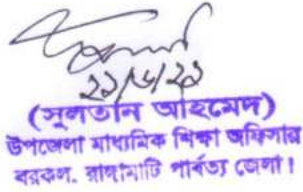 ২১/৬/২১
(সুলতান আহমেদ)
উপজেলা মাধ্যমিক শিক্ষা অফিসার
বরকল, রাঙ্গামাটি পার্বত্য জেলা।